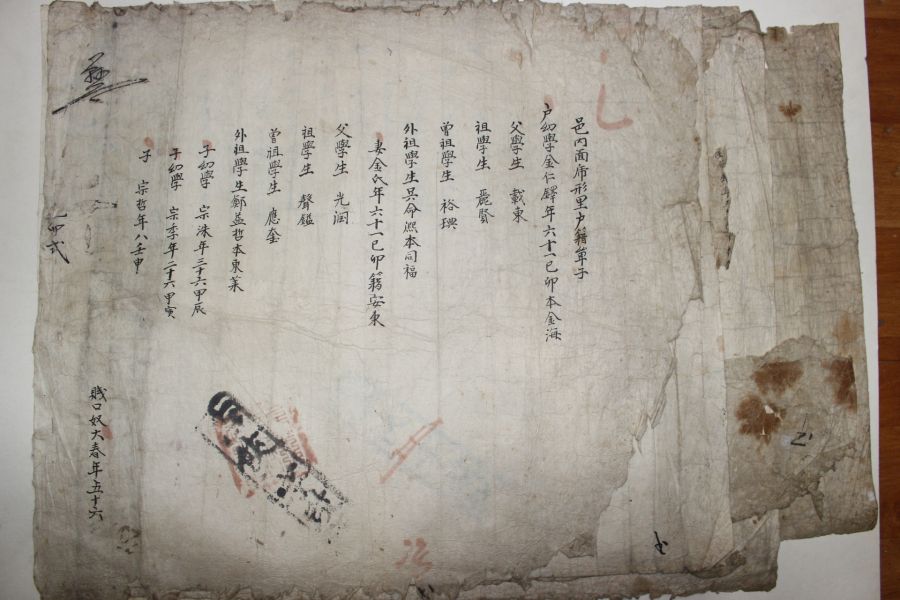 邑內面席形里户籍單子
户幼學金仁鐸年六十一己卯本金海
父學生 載東
祖學生 麗賢
曾祖學生 裕璵
外祖學生吳命熙本同福
妻金氏年六十一己卯籍安東
父學生 光潤
祖學生 聲鎰
曾祖學生 應奎
外祖學生鄭益哲本東萊
子幼學 宗洙年三十六甲辰
子幼學 宗季年二十六甲寅
子 宗哲年八壬申
賤口奴大春年五十六